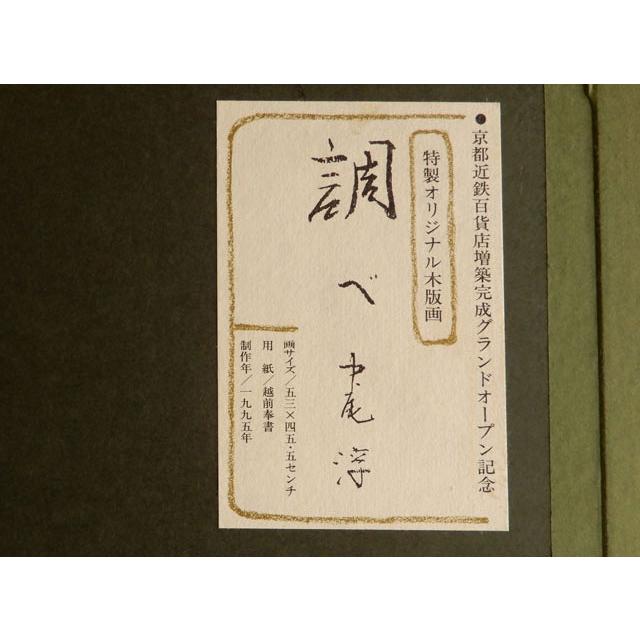 ●京都近鉄百貨店増築完成グランドオープン記念
特製オリジナル木版画
調べ
中尾淳
画サイズ／五三×四五・五センチ
用　紙／越前奉書
制作年／一九九五年